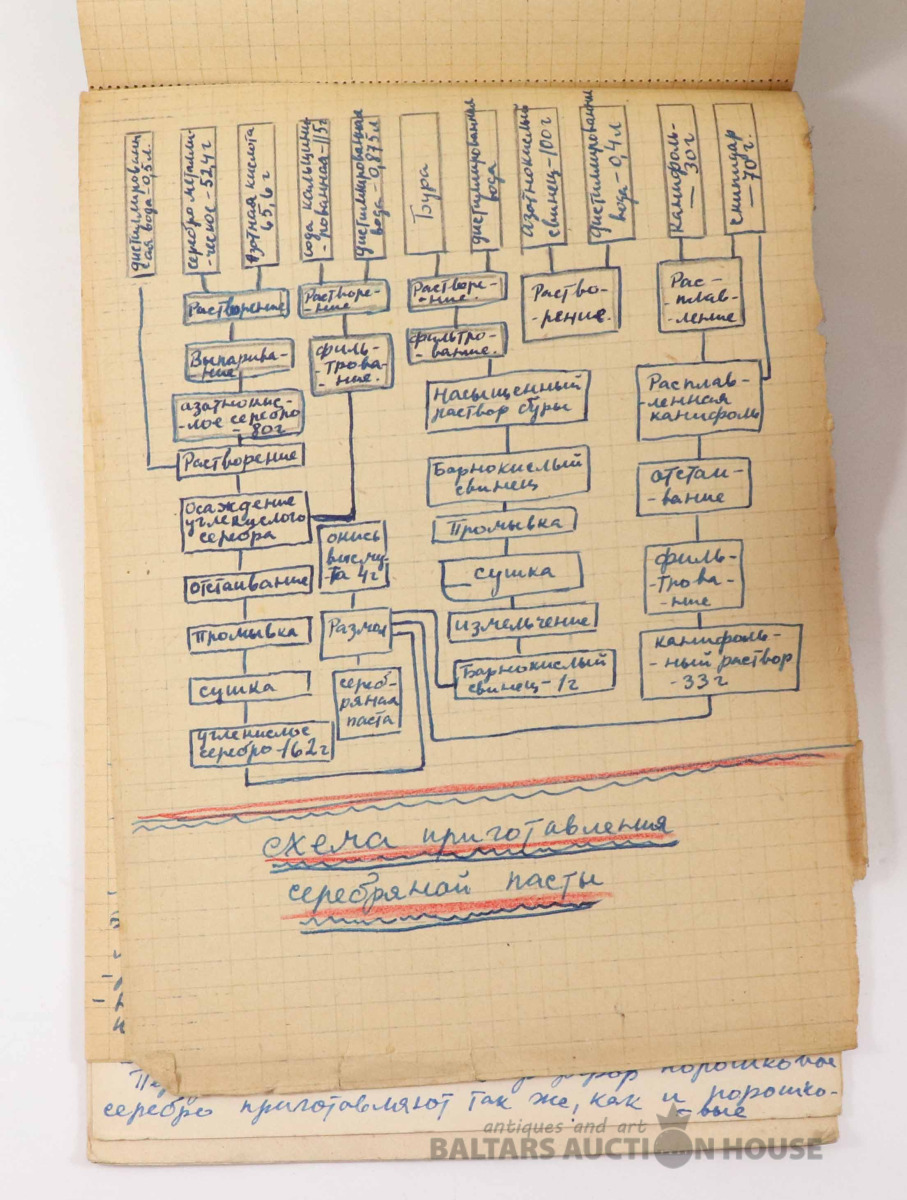 дистиллирован
ная вода-0,5 л.
серебро металли-
-ческое-52,4г
азотная кислота
65,6 г
сода кальцини-
-рованная-115г
дистиллированная
вода-0,875л
Бура
дистиллированная
вода
азотнокислый
свинец-100г
дистиллированная
вода-0,4л
Канифоль-
— 30г
скипидар
— 70г.
Растворение
Растворе-
-ние
Растворе-
-ние.
Раство-
-рение.
Рас-
-плав-
-ление
Выпарива-
-ние
филь-
-трова-
-ние.
фильтро-
-вание.
азотнокис-
-лое серебро
- 80г
Растворение
Насыщенный
раствор буры
Расплав-
-ленная
канифоль
Осаждение
углекислого
серебра
Барнокислый
свинец
отстаи-
-вание
окись
висму-
-та 4г
Промывка
отстаивание
сушка
филь-
-трова-
-ние
Промывка
Размол
измельчение
канифоль-
-ный раствор
-33г
сушка
сереб-
ряная
паста
Барнокислый
свинец-1г
углекислое
серебро-162г
схема приготовления
серебряной пасты
порошковое
серебро приготовляют так же, как и порошко-
-вые
antiques and art
BALTARS AUCTION HOUSE